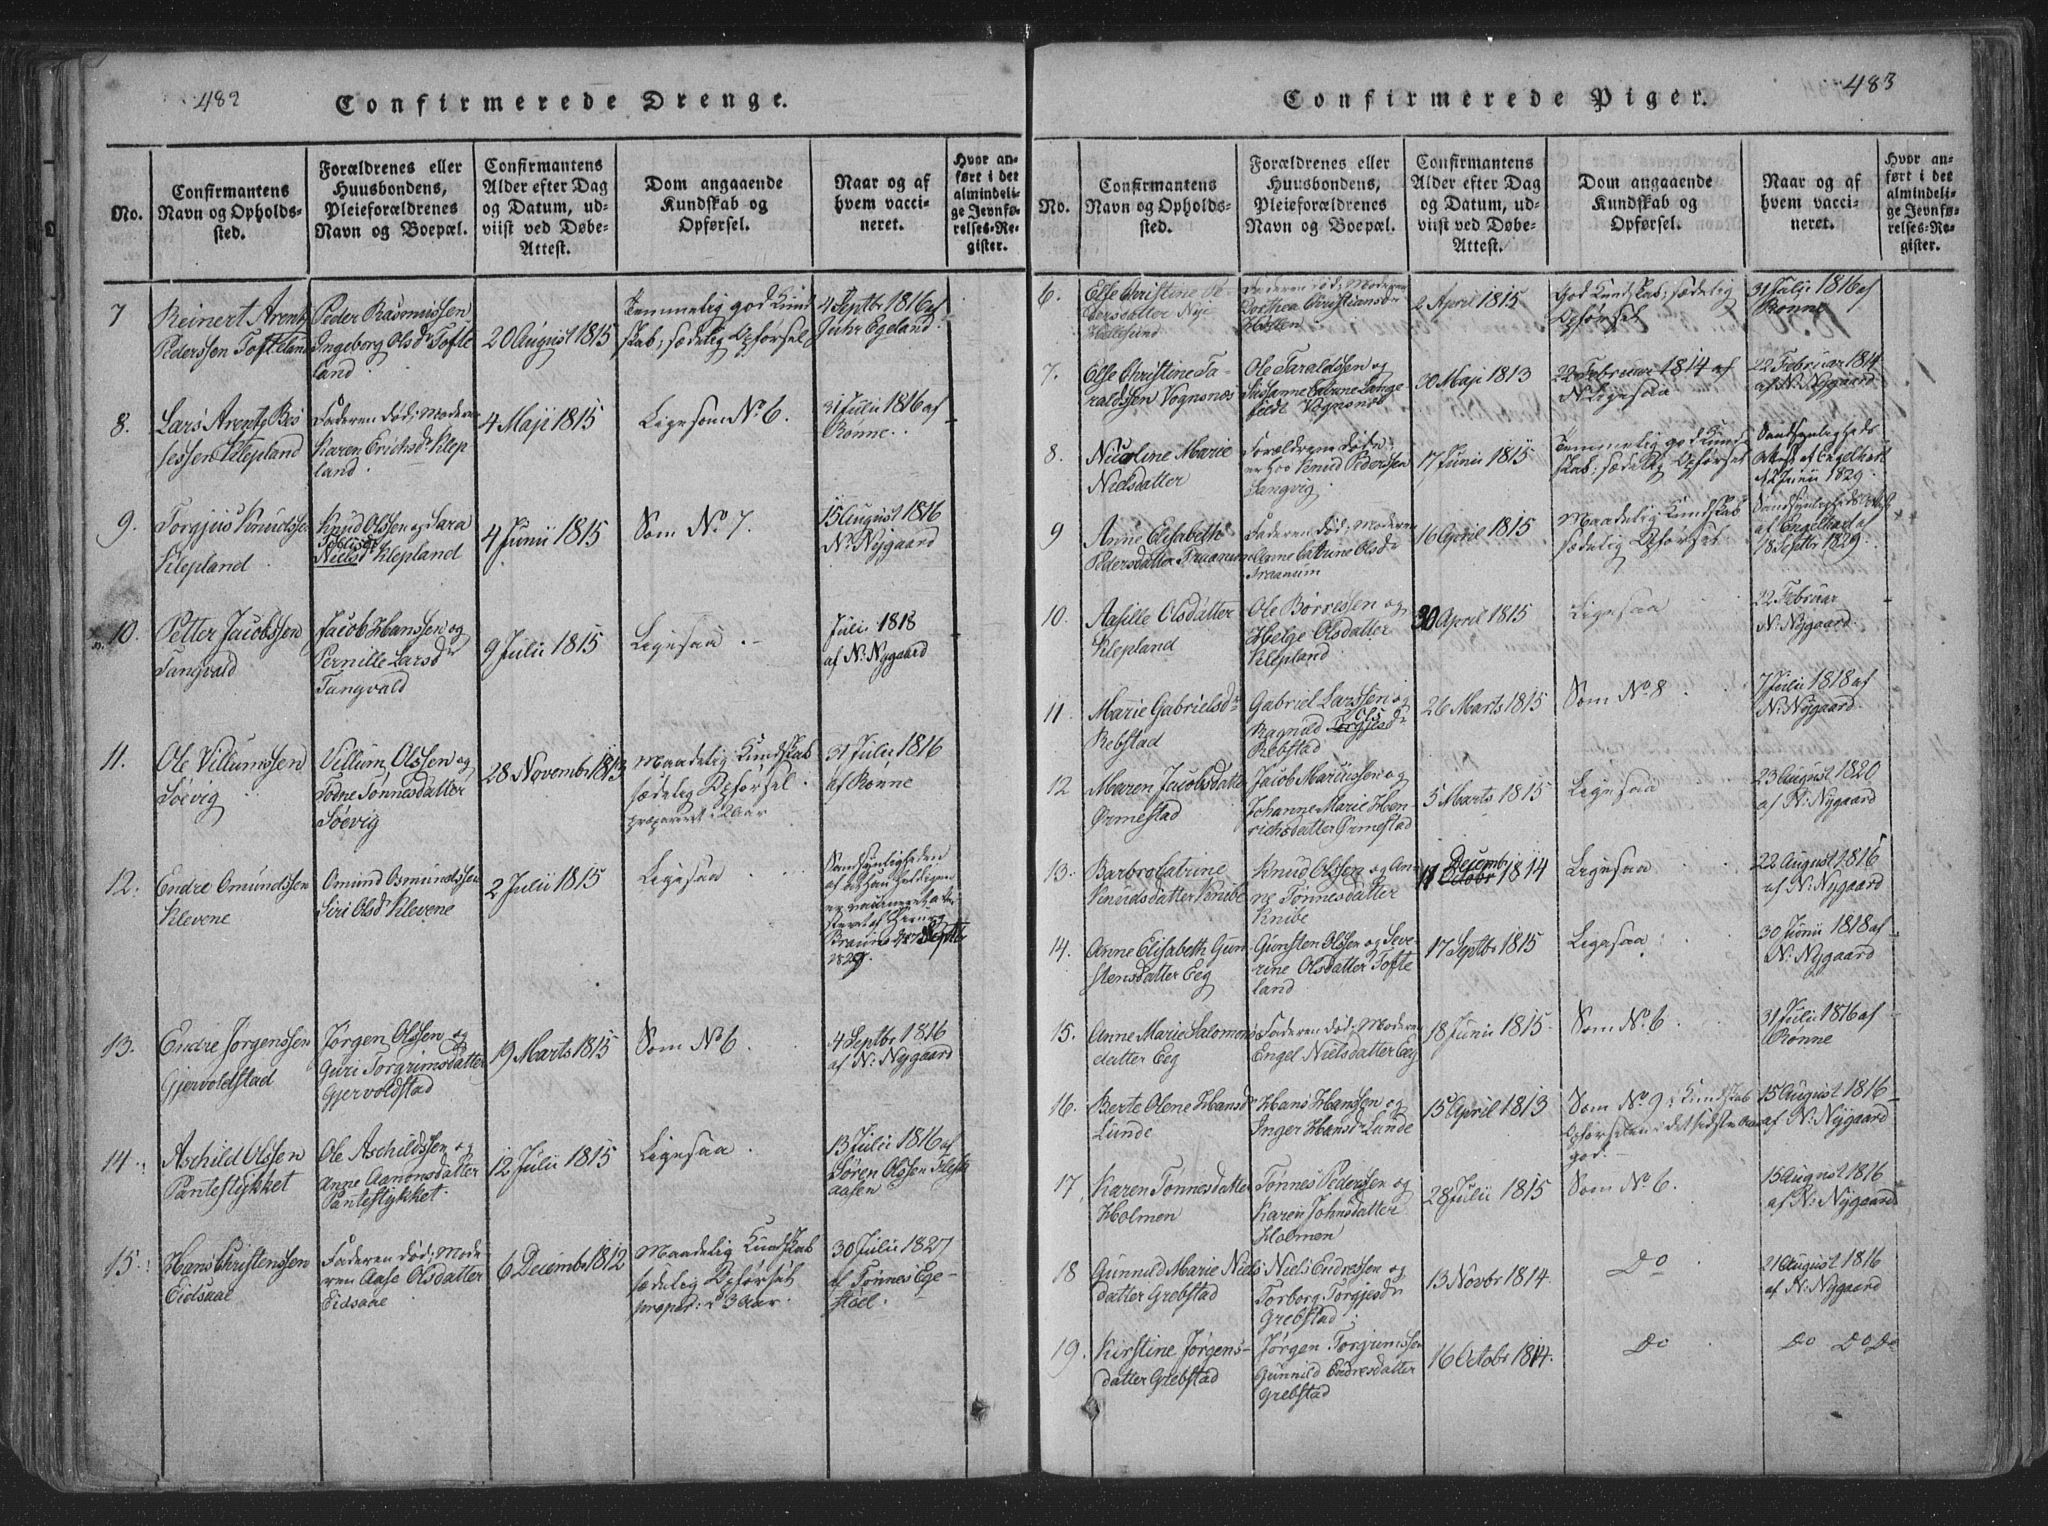 482
Confirmerede Drenge.
No.
Confirmantens
Navn og Opholds-
sted.
Forældrenes eller
Huusbondens,
Pleieforældrenes
Navn og Boepæl.
Confirmantens
Alder efter Dag
og Datum, ud-
viist ved Døbe-
Attest.
Dom angaaende
Kundskab og
Opførsel.
Naar og af
hvem vacci-
neret.
Hvor an-
ført i det
almindeli-
ge Jevnfø-
relses-Re-
gister.
7
Reinert Arent
Pederssen Tofteland
Peder Rasmussen
Ingeborg Olsdr Tofte
land
20 August 1815
Temmelig god Kund
skab; sædelig Opførsel
4 Septbr 1816 af
Juhr Egeland
8.
Lars Arent
sessen Klepland
Faderen død; Moderen
Karen Erichsdr Klep
land.
4 Maji 1815
Ligesom No 6.
31 Julii 1816 af
Rønne.
9.
Torgjus Knudssen
Klepland.
Knud Olssen og Sara
Nielsdr Klepland
4 Junii 1815
Som No 7.
15 August 1816
N. Nygaard
10.
Petter Jacobssen
Tangvald
Jacob Hanssen og
Pernille Larsdr
Tangvald
9 Julii 1815
Ligesaa
Juli 1818
af N. Nygaard
11.
Ole Villumssen
Søevig
Villum Olssen og
Todne Tønnesdatter
Søevig
28 Novembr 1813
Maadelig Kundskab
sædelig Opførsel.
præpareret 2 Aar
31 Julii 1816
af Rønne
12.
Endre Omundssen
Klevene
Omund Osmundssen
Siri Olsd Klevene
2 Julii 1815
Ligesaa
Sandsynligheden
af at han heldigen
er vaccineret
1829.
13.
Endre Jørgenssen
Gjervoldstad
Jørgen Olssen og
Guri Torgrimsdatter
Gjervoldstad
19 Marts 1815
Som No 6
4 Septbr 1816
af N. Nygaard
14.
Aschild Olssen
Pantestykket
Ole Aschildssen og
Anne Aamonsdatter
Pantestykket.
12 Julii 1815
Ligesaa
13 Julii 1816 af
Søren Olssen
aasen
15.
Hans Christenssen
Eidsaae
Faderen død; Mode
ren Aase Olsdatter
Eidsaae
6 Decembr 1812
Maadelig Kundskab
sædelig Opførsel
præpar: i 3 Aar.
30 Julii 1827
af Tønnes Ege-
støel.
483
Confirmerede Piger.
No.
Confirmantens
Navn og Opholds-
sted.
Forældrenes eller
Huusbondens,
Pleieforældrenes
Navn og Boepæl.
Confirmantens
Alder efter Dag
og Datum, ud-
viist ved Døbe-
Attest.
Dom angaaende
Kundskab og
Opførsel.
Naar og af
hvem vacci-
neret.
Hvor an-
ført i det
almindeli-
ge Jevnfø-
relses-Re-
gister.
6.
Else Christine Pe
dersdatter Nye
Hellesund
Faderen død; Moderen
Dorthea Christiansdr
2 April 1815
God Kundskab; sædelig
Opførsel
31 Julii 1816 af
Rønne
7.
Else Christine Ta
raldssen Vognsnæs
Ole Taraldssen og
Susanne Catrine Lange
feldt Vognsnæs
30 Maji 1813
22 Februar 1814 af
N. Ligesaa
22 Februar 1814
af N. Nygaard
8.
Nicoline Marie
Nielsdatter
Forældrene Døde
er hos Knud Pederssen
Langvig
17 Junii 1815
Temmelig god Kund
skab; sædelig Opførsel
Sandsynligheds
Attest af Engelhart
af 2 Junii 1829.
9
Anne Elisabeth
Pedersdatter Traanum
Faderen død; Moderen
Anne Catrine Olsdr
Traanum
16 April 1815
Maadelig Kundskab
sædelig Opførsel
Sandsynligheds Att
af Engelhart af
18 Septbr 1829.
10.
Aasille Olsdatter
Klepland
Ole Børressen og
Helge Olsdatter
Klepland
30 April 1815
Ligesaa
22 Februar
N. Nygaard
11.
Marie Gabrielsdr
Rebstad
Gabriel Larssen og
Ragnild Torgjusdr Ols
Rebstad
26 Marts 1815
Som No 8
7 Julii 1818 af
N. Nygaard
12
Maren Jacobsdatter
Ormestad
Jacob Marcussen og
Johanne Marie Hen
richsdatter Ormestad
5 Marts 1815
Ligesaa
23 August 1820
af N. Nygaard
13.
Barbro Catrine
Knudsdatter Knibe
Knud Olssen og An
ne Tønnesdatter
Knibe
Decembr
11 Octobr 1814
Ligesaa
22 August 1816
af N. Nygaard
14.
Anne Elisabeth Gun
stensdatter Eeg
Gunsten Olssen og Seve
rine Olsdatter Tofte
land
17 Septbr 1815
Ligesaa
30 Junii 1818 af
N. Nygaard
15.
Anne Marie Salomons
datter Eeg
Faderen død; Moderen
Engel Nielsdatter Eeg
18 Junii 1815.
Som No 6.
31 Julii 1816 af
Rønne
16.
Berte Olene Hansdr
Lunde
Hans Hanssen og
Inger Hansdr Lunde
15 April 1813
Som No 9 i Kundskab
Opførselen i det sidste Aar
god.
15 August 1816
af N. Nygaard
17
Karen Tønnesdatter
Holmen
Tønnes Pederssen og
Karen Johnsdatter
Holmen
28 Julii 1815
Som No 6.
15 August 1816
af N. Nygaard
18
Gunnild Marie Niels
datter Grebstad
Niels Endressen og
Torborg Torgjusdr
Grebstad
13 Novbr 1814.
Do
21 August 1816
af N. Nygaard
19.
Kirstine Jørgens-
datter Grebstad
Jørgen Torgrimssen
Gunnild Endresdatter
Grebstad
16 Octobr 1814.
Do
Do Do Do